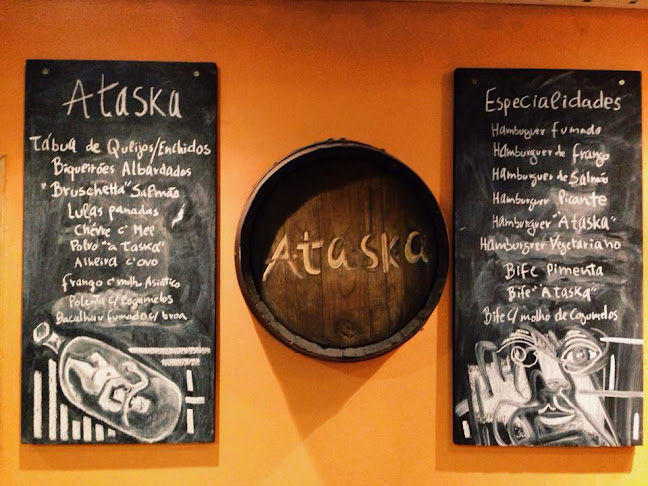 Ataska
Tábua de Queijos/Enchidos
Biqueirões Albardados
"Bruschetta" Salmão
Lulas panadas
Chévre c' Mel
Polvo "a Taska"
Alheira c'ovo
Frango c'molho Asiático
Polenta c/Cogumelos
Bacalhau fumado c/ broa
Ataska
Especialidades
Hamburguer fumado
Hamburguer de frango
Hamburguer de Salmão
Hamburguer Picante
Hamburguer "Ataska"
Hamburguer Vegetariano
Bife Pimenta
Bife "Ataska"
Bife c/molho de Cogumelos